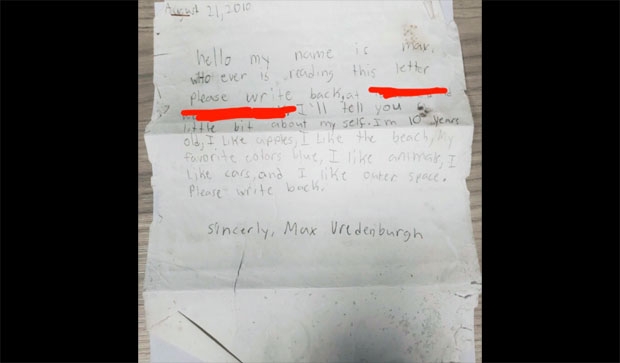 August 21, 2010
hello my name is max.
who ever is reading this letter
please write back, at
I'll tell you a
little bit about my self. Im 10 years
old, I like apples, I like the beach, My
favorite colors blue, I like animals, I
like cars, and I like outer space.
Please write back.
sincerly, Max Vredenburgh